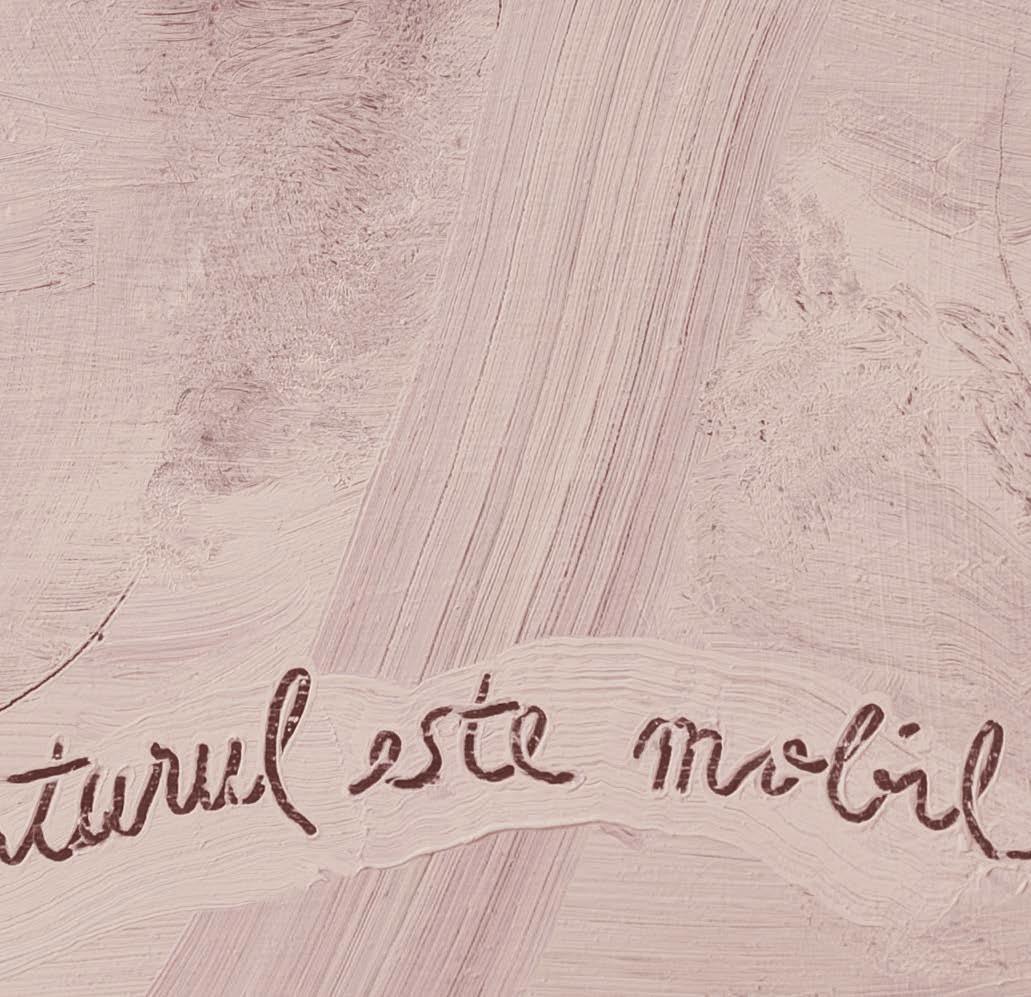 turul este mobil